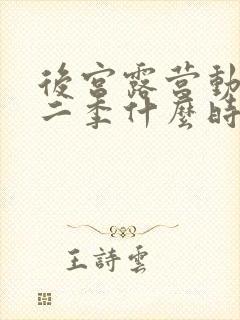 後宮露營動
二季什麼時
王詩雲